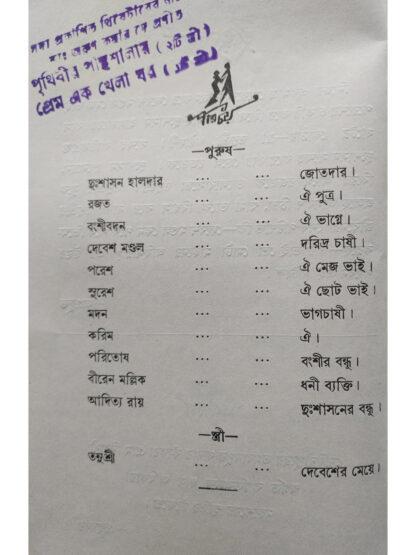 সদ্য প্রকাশিত থিয়েটারের
প্রণীত
পৃথিবীর পান্থশালায় (২টি স্ত্রী)
প্রেম এক খেলা ঘর (২টি স্ত্রী)
পরিচয়
—পুরুষ—
দুঃশাসন হালদার ... ... জোতদার।
রজত ... ... ঐ পুত্র।
বংশীবদন ... ... ঐ ভাগ্নে।
দেবেশ মণ্ডল ... ... দরিদ্র চাষী।
পরেশ ... ... ঐ মেজ ভাই।
সুরেশ ... ... ঐ ছোট ভাই।
মদন ... ... ভাগচাষী।
করিম ... ... ঐ।
পরিতোষ ... ... বংশীর বন্ধু।
বীরেন মল্লিক ... ... ধনী ব্যক্তি।
আদিত্য রায় ... ... দুঃশাসনের বন্ধু।
—স্ত্রী—
তনুশ্রী ... ... দেবেশের মেয়ে।